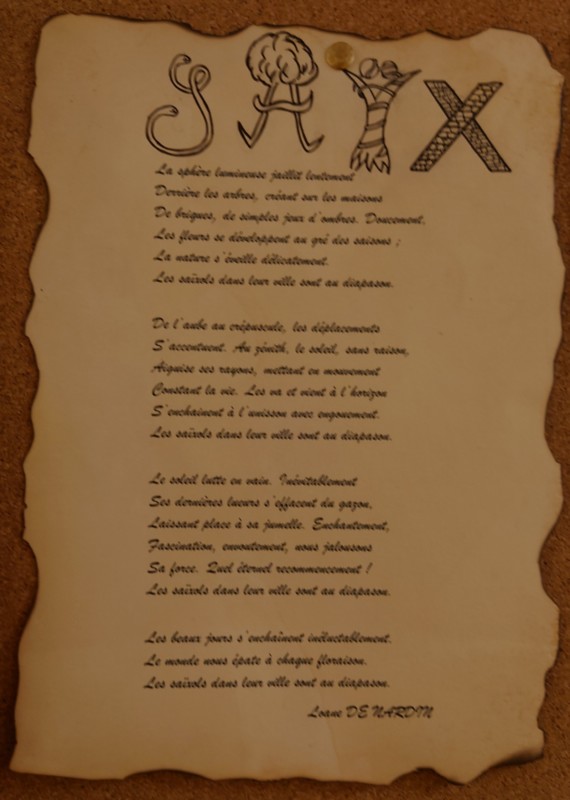 SAYX
La sphère lumineuse jaillit lentement
Derrière les arbres, créant sur les maisons
De briques, de simples jeux d'ombres. Doucement,
Les fleurs se développent au gré des saisons ;
La nature s'éveille délicatement.
Les saïxols dans leur ville sont au diapason.
De l'aube au crépuscule, les déplacements
S'accentuent. Au zénith, le soleil, sans raison,
Aiguise ses rayons, mettant en mouvement
Constant la vie. Les va et vient à l'horizon
S'enchainent à l'unisson avec engouement.
Les saïxols dans leur ville sont au diapason.
Le soleil lutte en vain. Inévitablement
Ses dernières lueurs s'effacent du gazon,
Laissant place à sa jumelle. Enchantement,
Fascination, envoutement, nous jalousons
Sa force. Quel éternel recommencement !
Les saïxols dans leur ville sont au diapason.
Les beaux jours s'enchaînent inéluctablement.
Le monde nous épate à chaque floraison.
Les saïxols dans leur ville sont au diapason.
Loane DE NARDIN